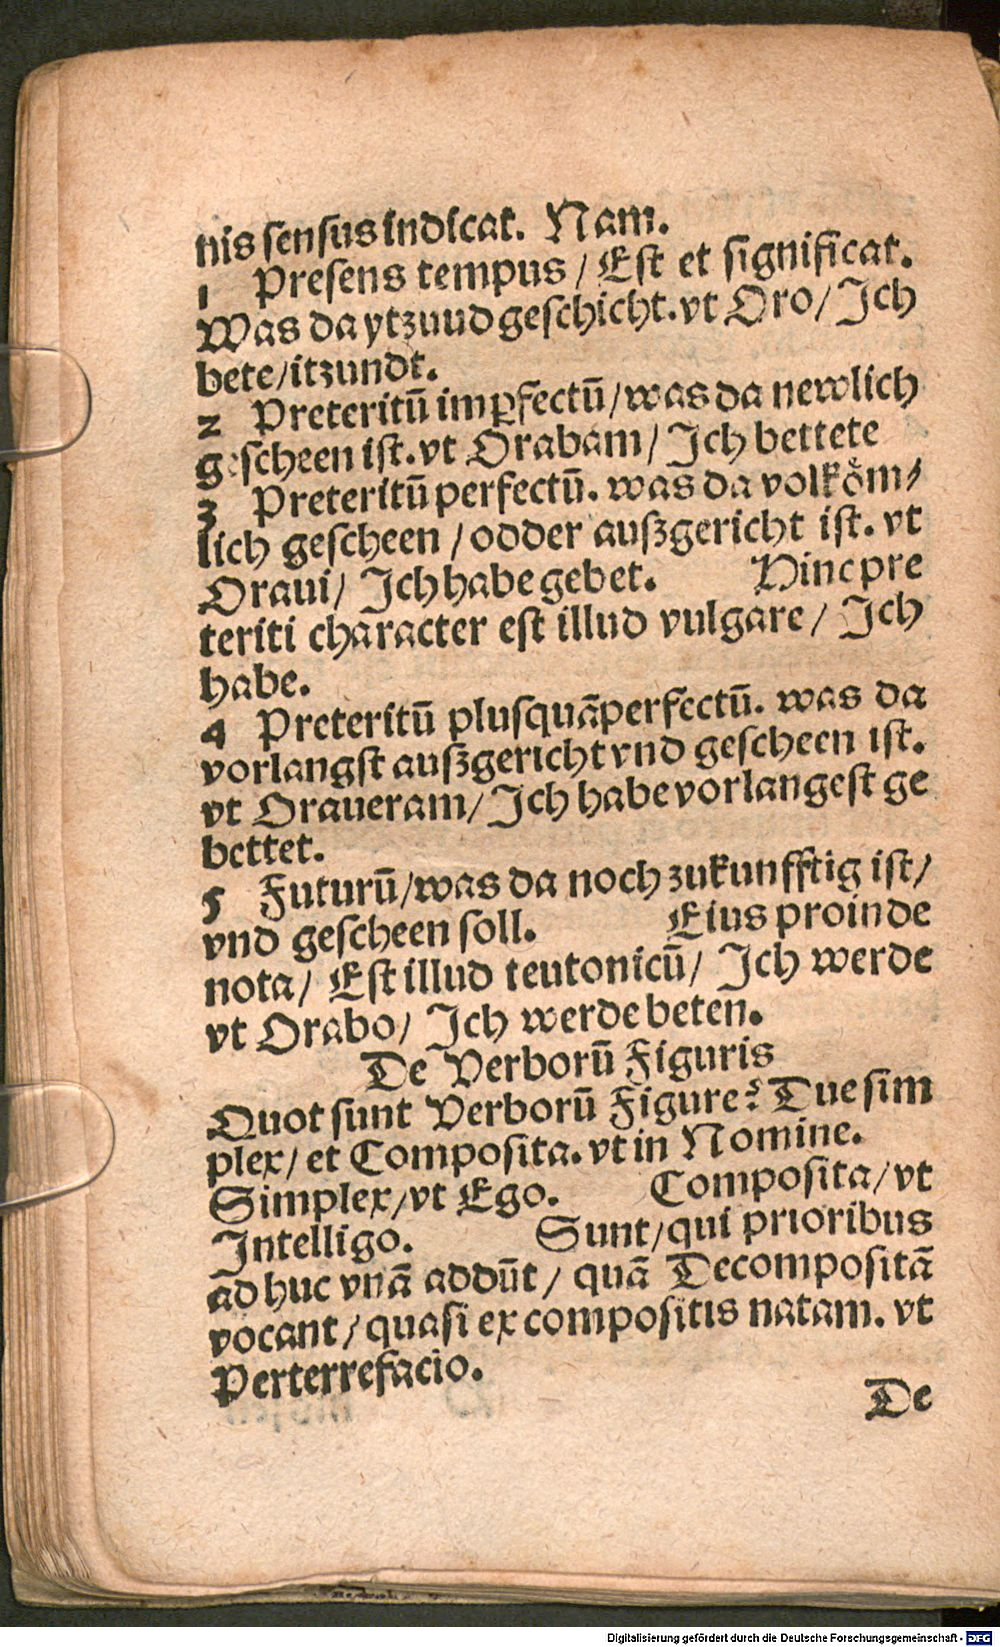 nis sensus indicat. Nam.
1 Presens tempus / Est et significat.
Was da ytzuud geschicht. vt Oro / Ich
bete / itzundt.
2 Preteritū imꝑfectū / was da newlich
gescheen ist. vt Orabam / Ich bettete
3 Preteritū perfectū. was da volkōm⸗
lich gescheen / odder außgericht ist. vt
Oraui / Ich habe gebet. Hinc pre
teriti character est illud vulgare / Ich
habe.
4 Preteritū plusquāperfectū. was da
vorlangst außgericht vnd gescheen ist.
vt Oraueram / Ich habe vorlangest ge
bettet.
5 Futurū / was da noch zukunfftig ist /
vnd gescheen soll. Eius proinde
nota / Est illud teutonicū / Ich werde
vt Orabo / Ich werde beten.
De Verborū Figuris
Quot sunt Verborū Figure? Due sim
plex / et Composita. vt in Nomine.
Simplex / vt Ego. Composita / vt
Intelligo. Sunt / qui prioribus
ad huc vnā addūt / quā Decompositā
vocant / quasi ex compositis natam. vt
Perterrefacio.
De
Digitalisierung gefördert durch die Deutsche Forschungsgemeinschaft - DFG